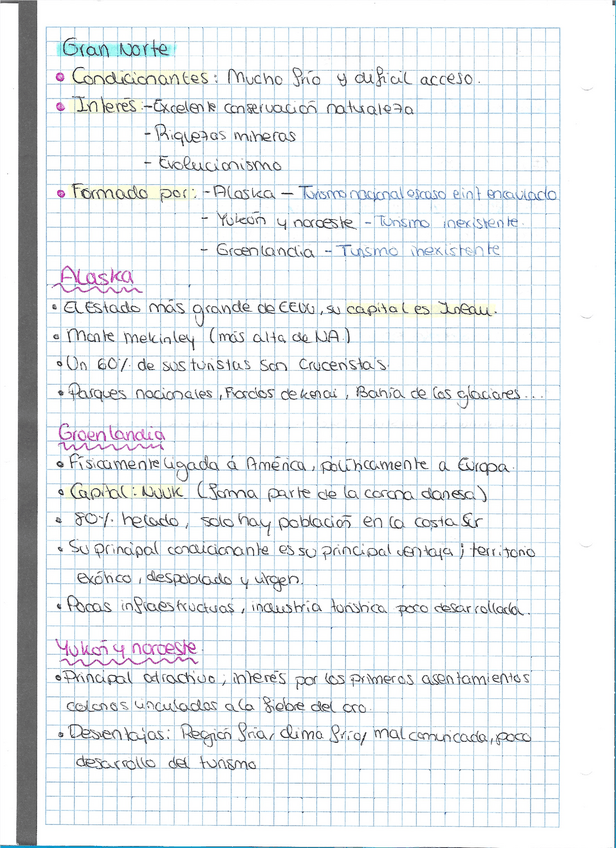 Gran Norte
• Condicionantes: Mucho frío y dificil acceso.
• Interes: - Excelente conservación naturaleza
- Riquezas mineras
- Evolucionismo
• Formado por: - Alaska - Turismo nacional escaso e int encaulado
- Yukón y noroeste - Turismo inexistente.
- Groenlandia - Turismo inexistente
Alaska
• El Estado más grande de EEUU, su capital es Juneau.
• Monte mckinley (más alta de NA)
• Un 60% de sus turistas son Cruceristas.
• Parques nacionales, Fiordos de kenai, Bahía de los glaciares...
Groenlandia
• Físicamente ligada á América, políticamente a Europa.
• Capital: NUUK (forma parte de la corona danesa)
• 80% helado, solo hay población en la costa Sur
• Su principal condicionante es su principal ventaja; territorio
exótico, despoblado y virgen.
• Pocas infraestructuras, industria turística poco desarrollada.
Yukón y noroeste
• Principal atractivo, interés por los primeros asentamientos
colonos vinculados a la fiebre del oro.
• Desventajas: Región fría, clima frío, mal comunicada, poco
desarrollo del turismo